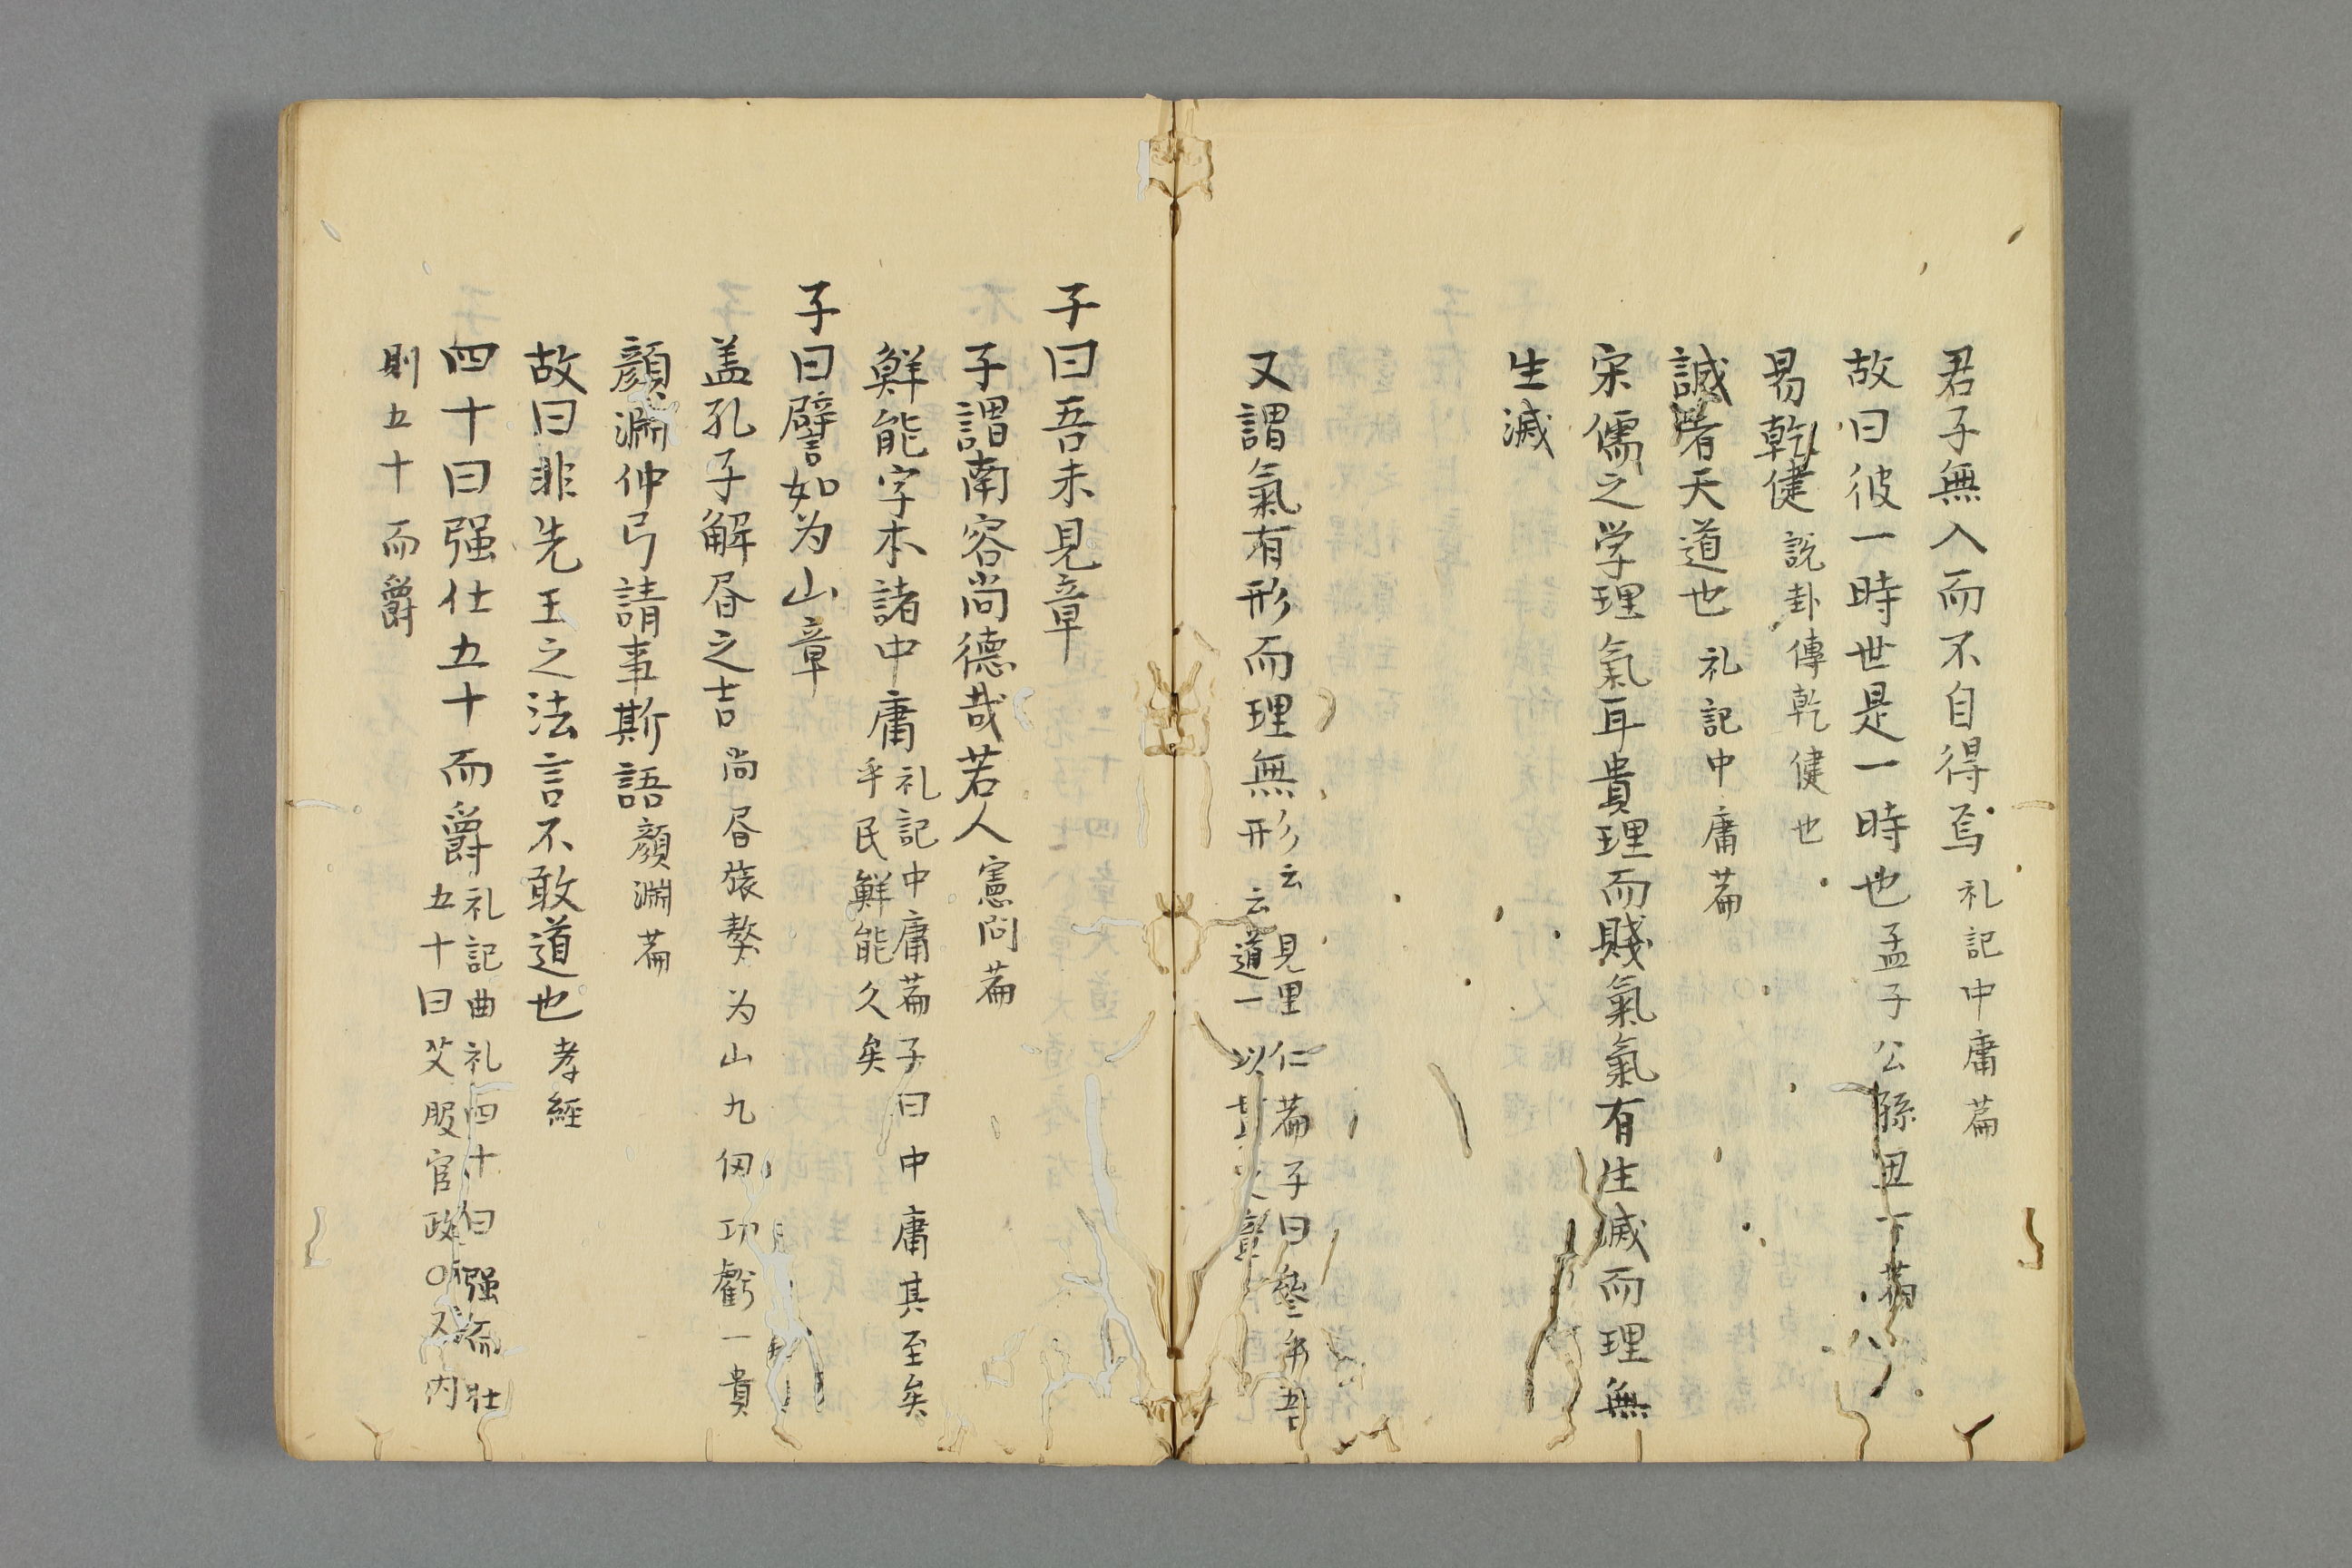 君子無入而不自得焉 礼記中庸篇
故曰彼一時世是一時也 孟子公孫丑下篇
易乾健 説卦傳乾健也
誠者天道也 礼記中庸篇
宋儒之学理氣耳貴理而賤氣氣有生滅而理無
生滅
又謂氣有形而理無形 云 見里仁篇子曰參乎吾
云 道一以 章
子曰吾未見章
子謂南容尚德哉若人 憲問篇
鮮能字本諸中庸 礼記中庸篇子曰中庸其至矣
乎民鮮能久矣
子曰譬如为山章
盖孔子解昏之吉 尚昏旅獒 为山九仞功虧一貴
顔淵仲弓請事斯語 顔淵篇
故曰非先王之法言不敢道也 孝經
四十曰强仕五十而爵 礼記曲礼四十曰强而仕
五十曰艾服官政〇又内
則五十而爵